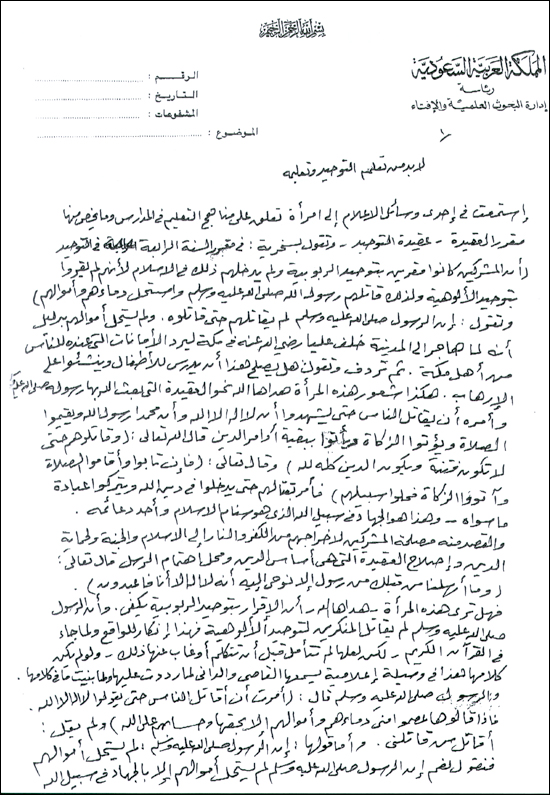 بسم الله الرحمن الرحيم
المملكة العربية السعودية
رئاسة
إدارة البحوث العلمية والإفتاء
الرقـم :
التاريخ :
المشفوعات :
الموضوع :
لابد من تعلم التوحيد وتعليمه
إستمعت في إحدى وسائل الاعلام إلى امرأة تعلق على مناهج التعليم في المدارس وما يخص منها
مقرر العقيدة - عقيدة التوحيد - وتقول بسخرية : في مقرر السنة الرابعة في التوحيد
(أن المشركين كانوا مقرين بتوحيد الربوبية ولم يدخلهم ذلك في الاسلام لأنهم لم يقروا
بتوحيد الألوهية ولذلك قاتلهم رسول الله صلى الله عليه وسلم واستحل دماءهم وأموالهم)
وتقول : إن الرسول صلى الله عليه وسلم لم يقاتلهم حتى قاتلوه . ولم يستحل أموالهم بدليل
أنه لما هاجر إلى المدينة خلف عليا رضي الله عنه في مكة ليرد الأمانات التي عنده للناس
من أهل مكة . ثم تردف وتقول هل يصلح هذا أن يدرس للأطفال وينشئوا على
الإرهاب . هكذا شعور هذه المرأة هداها الله نحو العقيدة التي بعث الله بها رسوله صلى الله عليه
وأمره أن يقاتل الناس حتى يشهدوا أن لا إله إلا الله وأن محمدا رسول الله ويقيموا
الصلاة ويؤتوا الزكاة ويأتوا ببقية أوامر الدين قال الله تعالى : (وقاتلوهم حتى
لا تكون فتنة ويكون الدين كله لله) وقال تعالى : (فإن تابوا وأقاموا الصلاة
وآتووا الزكاة فخلوا سبيلهم) فأمر بقتالهم حتى يدخلوا في دين الله ويتركوا عبادة
ما سواه - وهذا هو الجهاد في سبيل الله الذي هو سنام الاسلام وأحد دعائمه .
والقصد منه مصلحة المشركين لاخراجهم من الكفر والنار إلى الاسلام والجنة ولحماية
الدين وإصلاح العقيدة التي هي أساس الدين ومحل أهتمام الرسل قال تعالى :
(وما أرسلنا من قبلك من رسول إلا نوحي إليه أنه لا إله إلا أنا فاعبدون) .
فهل ترى هذه المرأة - هداها الله - أن الإقرار بتوحيد الربوبية يكفي . وأن الرسول
صلى الله عليه وسلم لم يقاتل المنكرين لتوحيد الألوهية فهذا إنكار للواقع ولما جاء
في القرآن الكريم - لكن لعلها لم تتأمل قبل أن تتكلم أو غاب عنها ذلك - ولو لم يكن
كلامها هذا في وسيلة إعلامية يسمعها القاصي والداني لما رددت عليها ولما بينت ما في كلامها .
والرسول صلى الله عليه وسلم قال : (أمرت أن أقاتل الناس حتى يقولوا لا إله إلا الله .
فإذا قالوها عصموا مني دماءهم وأموالهم إلا بحقها وحسابهم على الله) ولم يقل :
أقاتل من قاتلني . وأما قولها : إن الرسول صلى الله عليه وسلم : لم يستحل أموالهم
فنقول نعم إن الرسول صلى الله عليه وسلم لم يستحل أموالهم إلا بالجهاد في سبيل الله